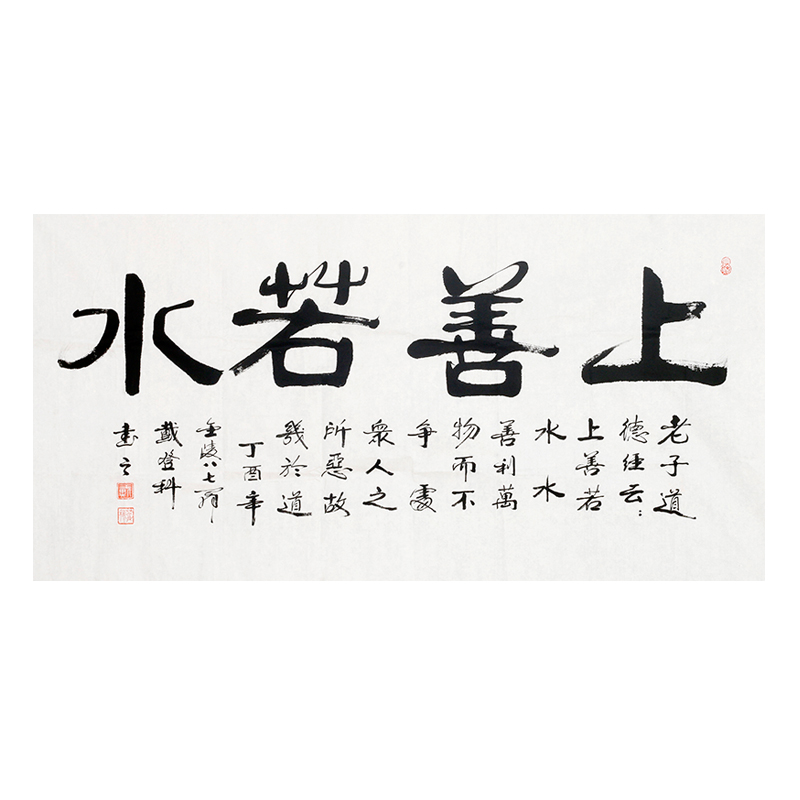 上善若水
老子道
德经云：
上善若
水水
善利萬
物而不
争處
衆人之
所惡故
幾於道
丁酉年
金陵八七翁
戴登科
书之